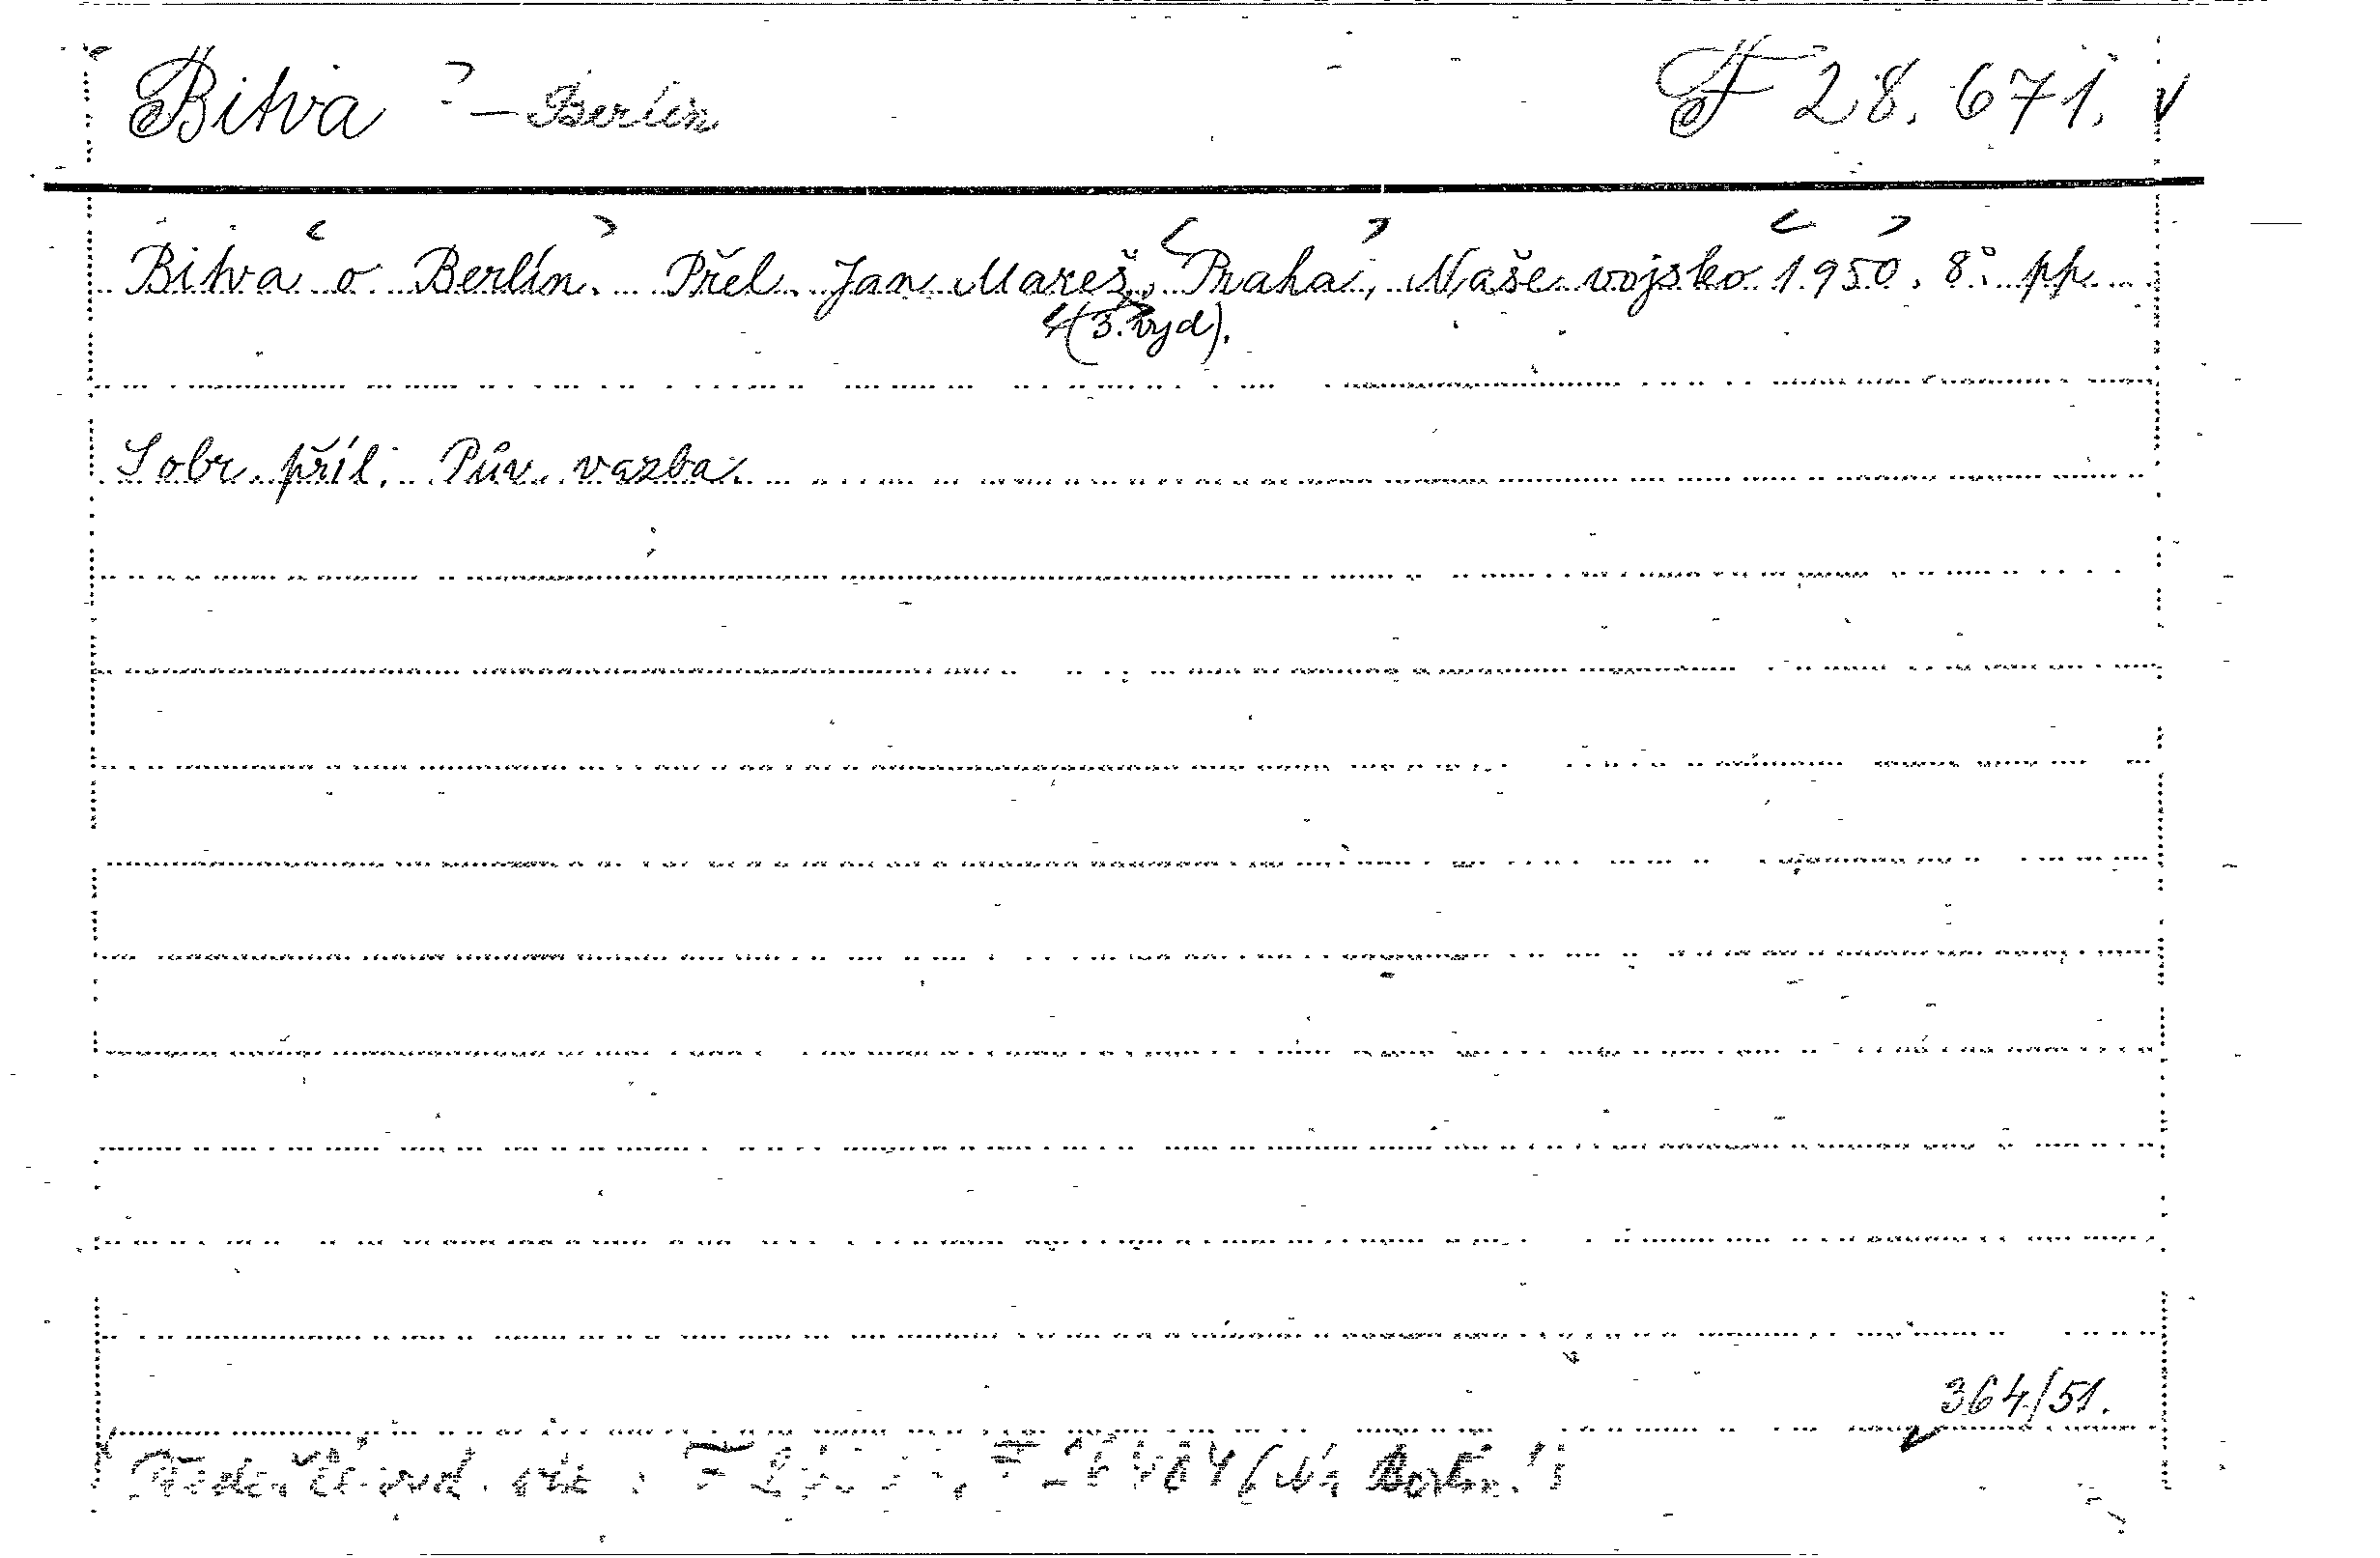 Bitva – Berlín F 28.671. v
Bitva o Berlín. Přel. Jan Mareš, Praha, Naše vojsko 1950. 8°. pp.
(3. vyd).
S obr. příl. Pův. vazba.
364/51.
vyd. viz : F F (Na Berlín!)